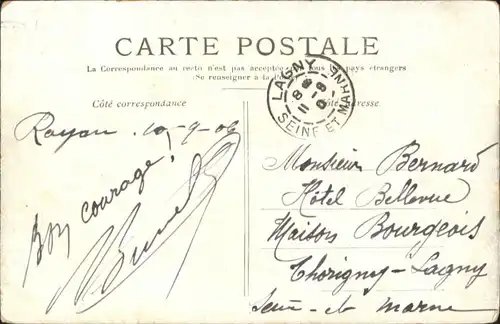 CARTE POSTALE
La Correspondance au recto n'est pas acceptée tous pays étrangers
(Se renseigner à la
Côté correspondance
adresse
LAGNY
8
11 - 9
SEINE ET MARNE
Royan 10-9-06
Bon courage,
Monsieur Bernard
Hôtel Bellevue
Maison Bourgeois
Thorigny-Lagny
Seine-et Marne